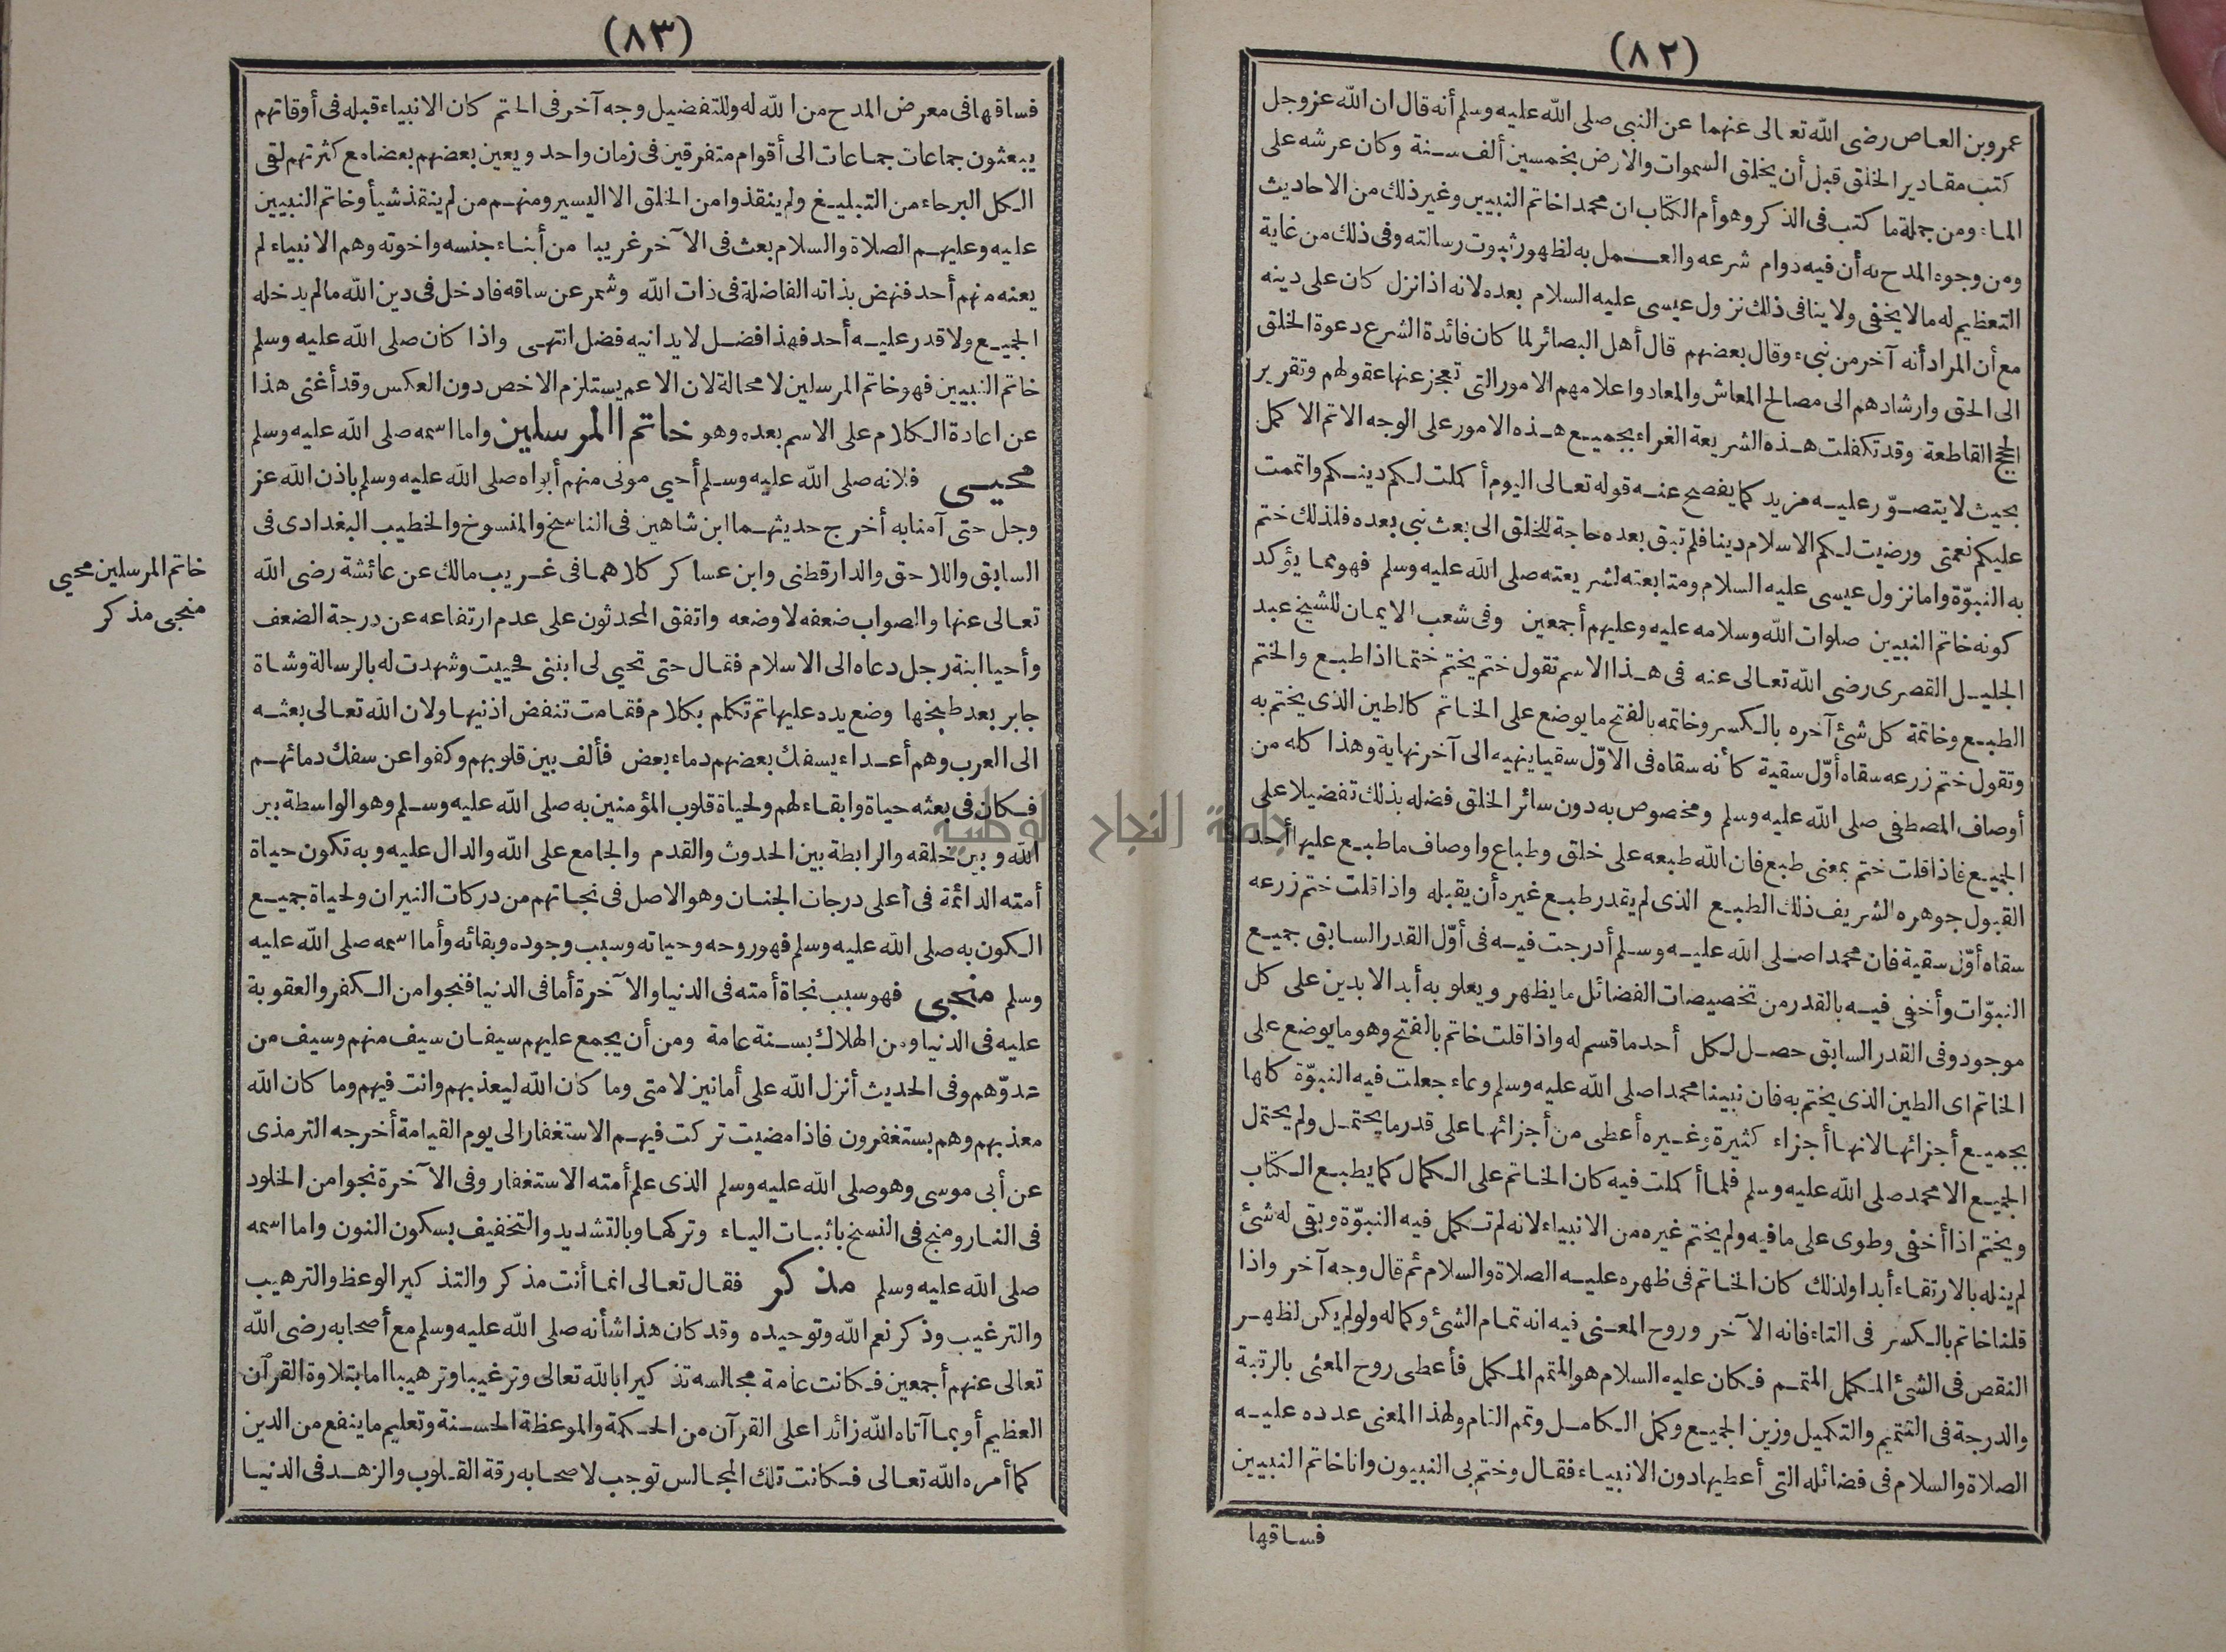 (٨٢)
عمرو بن العاص رضى الله تعالى عنهما عن النبى صلى الله عليه وسلم أنه قال ان الله عز وجل
كتب مقادير الخلق قبل أن يخلق السموات والارض بخمسين ألف سنة وكان عرشه على
الماء ومن جملة ما كتب فى الذكر وهو أم الكتاب ان محمدا خاتم النبيين وغير ذلك من الاحاديث
ومن وجوه المدح به أن فيه دوام شرعه والعمل به لظهور ثبوت رسالته وفى ذلك من غاية
التعظيم له ما لا يخفى ولا ينافى ذلك نزول عيسى عليه السلام بعده لانه اذا نزل كان على دينه
مع أن المراد أنه آخر من نبىء وقال بعضهم قال أهل البصائر لما كان فائدة الشرع دعوة الخلق
الى الحق وارشادهم الى مصالح المعاش والمعاد واعلامهم الامور التى تعجز عنها عقولهم وتقرير
الحجج القاطعة وقد تكفلت هذه الشريعة الغراء بجميع هذه الامور على الوجه الاتم الاكمل
بحيث لا يتصوّر عليه مزيد كما يفصح عنه قوله تعالى اليوم أكملت لكم دينكم واتممت
عليكم نعمتى ورضيت لكم الاسلام دينا فلم تبق بعده حاجة للخلق الى بعث نبى بعده فلذلك ختم
به النبوّة واما نزول عيسى عليه السلام ومتابعته لشريعته صلى الله عليه وسلم فهو مما يؤكد
كونه خاتم النبيين صلوات الله وسلامه عليه وعليهم أجمعين وفى شعب الايمان للشيخ عبد
الجليل القصرى رضى الله تعالى عنه فى هذا الاسم تقول ختم يختم ختما اذا طبع والختم
الطبع وخاتمة كل شئ آخره بالكسر وخاتمه بالفتح ما يوضع على الخاتم كالطين الذى يختم به
وتقول ختم زرعه سقاه أوّل سقية كأنه سقاه فى الاوّل سقيا ينهيه الى آخر نهاية وهذا كله من
أوصاف المصطفى صلى الله عليه وسلم ومخصوص به دون سائر الخلق فضله بذلك تفضيلا على
الجميع فاذا قلت ختم بمعنى طبع فان الله طبعه على خلق وطباع واوصاف ما طبع عليها أحد
القبول جوهره الشريف ذلك الطبع الذى لم يقدر طبع غيره أن يقبله واذا قلت ختم زرعه
سقاه أوّل سقية فان محمدا صلى الله عليه وسلم أدرجت فيه فى أوّل القدر السابق جميع
النبوّات وأخفى فيه بالقدر من تخصيصات الفضائل ما يظهر ويعلو به أبد الابدين على كل
موجود وفى القدر السابق حصل لكل أحد ما قسم له واذا قلت خاتم بالفتح وهو ما يوضع على
الخاتم اى الطين الذى يختم به فان نبينا محمدا صلى الله عليه وسلم وعاء جعلت فيه النبوّة كلها
بجميع أجزائها لانها أجزاء كثيرة وغيره أعطى من أجزائها على قدر ما يحتمل ولم يحتمل
الجميع الا محمد صلى الله عليه وسلم فلما أكملت فيه كان الخاتم على الكمال كما يطبع الكتاب
ويختم اذا أخفى وطوى على ما فيه ولم يختم غيره من الانبياء لانه لم تكمل فيه النبوّة وبقى له شئ
لم ينله بالارتقاء أبدا ولذلك كان الخاتم فى ظهره عليه الصلاة والسلام ثم قال وجه آخر واذا
قلنا خاتم بالكسر فى التاء فانه الآخر وروح المعنى فيه انه تمام الشئ وكماله ولو لم يكن لظهر
النقص فى الشئ المكمل المتمم فكان عليه السلام هو المتمم المكمل فأعطى روح المعنى بالرتبة
والدرجة فى التتميم والتكميل وزين الجميع وكمل الكامل وتمم التام ولهذا المعنى عدده عليه
الصلاة والسلام فى فضائله التى أعطيها دون الانبياء فقال وختم بى النبيون وانا خاتم النبيين
فساقها
(٨٣)
فساقها فى معرض المدح من الله له وللتفضيل وجه آخر فى الختم كان الانبياء قبله فى أوقاتهم
يبعثون جماعات جماعات الى أقوام متفرقين فى زمان واحد ويعين بعضهم بعضا مع كثرتهم لقى
الكل البرحاء من التبليغ ولم ينقذوا من الخلق الا اليسير ومنهم من لم ينقذ شيأ وخاتم النبيين
عليه وعليهم الصلاة والسلام بعث فى الآخر غريبا من أبناء جنسه واخوته وهم الانبياء لم
يعنه منهم أحد فنهض بذاته الفاضلة فى ذات الله وشمر عن ساقه فادخل فى دين الله ما لم يدخله
الجميع ولا قدر عليه أحد فهذا فضل لا يدانيه فضل انتهى واذا كان صلى الله عليه وسلم
خاتم النبيين فهو خاتم المرسلين لا محالة لان الاعم يستلزم الاخص دون العكس وقد أغنى هذا
عن اعادة الكلام على الاسم بعده وهو خاتم المرسلين واما اسمه صلى الله عليه وسلم
محيى فلانه صلى الله عليه وسلم أحيى موتى منهم أبواه صلى الله عليه وسلم باذن الله عز
وجل حتى آمنا به أخرج حديثهما ابن شاهين فى الناسخ والمنسوخ والخطيب البغدادى فى
السابق واللاحق والدارقطنى وابن عساكر كلاهما فى غريب مالك عن عائشة رضى الله
تعالى عنها والصواب ضعفه لا وضعه واتفق المحدثون على عدم ارتفاعه عن درجة الضعف
وأحيا ابنة رجل دعاه الى الاسلام فقال حتى تحيى لى ابنتى فحييت وشهدت له بالرسالة وشاة
جابر بعد طبخها وضع يده عليها ثم تكلم بكلام فقامت تنفض اذنيها ولان الله تعالى بعثه
الى العرب وهم أعداء يسفك بعضهم دماء بعض فألف بين قلوبهم وكفوا عن سفك دمائهم
فكان فى بعثه حياة وابقاء لهم ولحياة قلوب المؤمنين به صلى الله عليه وسلم وهو الواسطة بين
الله وبين خلقه والرابطة بين الحدوث والقدم والجامع على الله والدال عليه وبه تكون حياة
أمته الدائمة فى أعلى درجات الجنان وهو الاصل فى نجاتهم من دركات النيران ولحياة جميع
الكون به صلى الله عليه وسلم فهو روحه وحياته وسبب وجوده وبقائه وأما اسمه صلى الله عليه
وسلم منجى فهو سبب نجاة أمته فى الدنيا والآخرة أما فى الدنيا فنجوا من الكفر والعقوبة
عليه فى الدنيا ومن الهلاك بسنة عامة ومن أن يجمع عليهم سيفان سيف منهم وسيف من
عدوّهم وفى الحديث أنزل الله على أمانين لامتى وما كان الله ليعذبهم وانت فيهم وما كان الله
معذبهم وهم يستغفرون فاذا مضيت تركت فيهم الاستغفار الى يوم القيامة أخرجه الترمذى
عن أبى موسى وهو صلى الله عليه وسلم الذى علم أمته الاستغفار وفى الآخرة نجوا من الخلود
فى النار ومنج فى النسخ باثبات الياء وتركها وبالتشديد والتخفيف بسكون النون واما اسمه
صلى الله عليه وسلم مذكر فقال تعالى انما أنت مذكر والتذكير الوعظ والترهيب
والترغيب وذكر نعم الله وتوحيده وقد كان هذا شأنه صلى الله عليه وسلم مع أصحابه رضى الله
تعالى عنهم أجمعين فكانت عامة مجالسه تذكيرا بالله تعالى وترغيبا وترهيبا اما بتلاوة القرآن
العظيم أو بما آتاه الله زائدا على القرآن من الحكمة والموعظة الحسنة وتعليم ما ينفع من الدين
كما أمره الله تعالى فكانت تلك المجالس توجب لاصحابه رقة القلوب والزهد فى الدنيا
خاتم المرسلين محيى
منجى مذكر
جامعة النجاح الوطنية